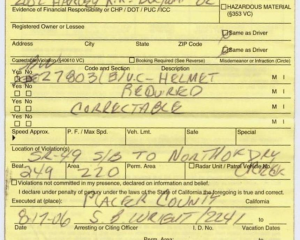 Evidence of Financial Responsibility or CHP / DOT / PUC / ICC
HAZARDOUS MATERIAL
(§353 VC)
Registered Owner or Lessee
Same as Driver
Address
City
State
ZIP Code
Same as Driver
Correctable Violation (§40610 VC)
Misdemeanor or Infraction (Circle)
Yes No
Code and Section
Description
27803(B)VC-HELMET
M I
REQUIRED
M I
CORRECTABLE
M I
M I
Speed Approx.
P. F. / Max Spd.
Veh. Lmt.
Safe
Location of Violation(s)
SR-49 S/B TO NORTH OF DRY
CREEK
Beat
Area
249
220
Violations not committed in my presence, declared on information and belief.
I declare under penalty of perjury under the laws of the State of California the foregoing is true and correct.
Executed at (place):
PLACER COUNTY
California
8-17-06
S. B WRIGHT/2241
Date
Arresting or Citing Officer
I. D. No.
Vacation Dates